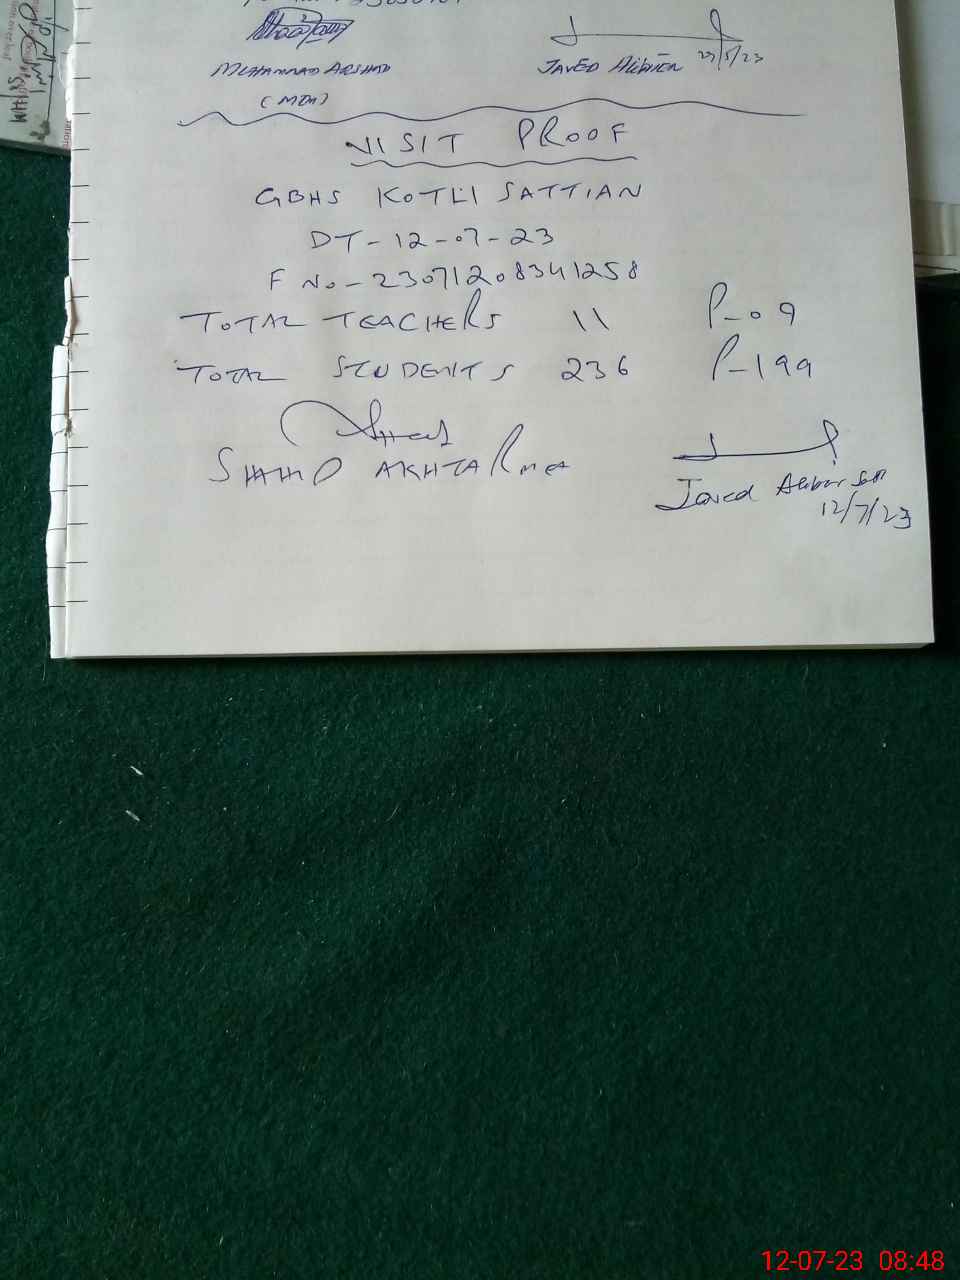 MUHAMMAD ARSHAD
(MEA)
JAVED
VISIT PROOF
GBHS KOTLI SATTIAN
DT-12-07-23
F No-23071208341258
TOTAL TEACHERS 11 P-09
TOTAL STUDENTS 236 P-199
AKHTAR MEA
Javed
12/7/23
12-07-23 08:48